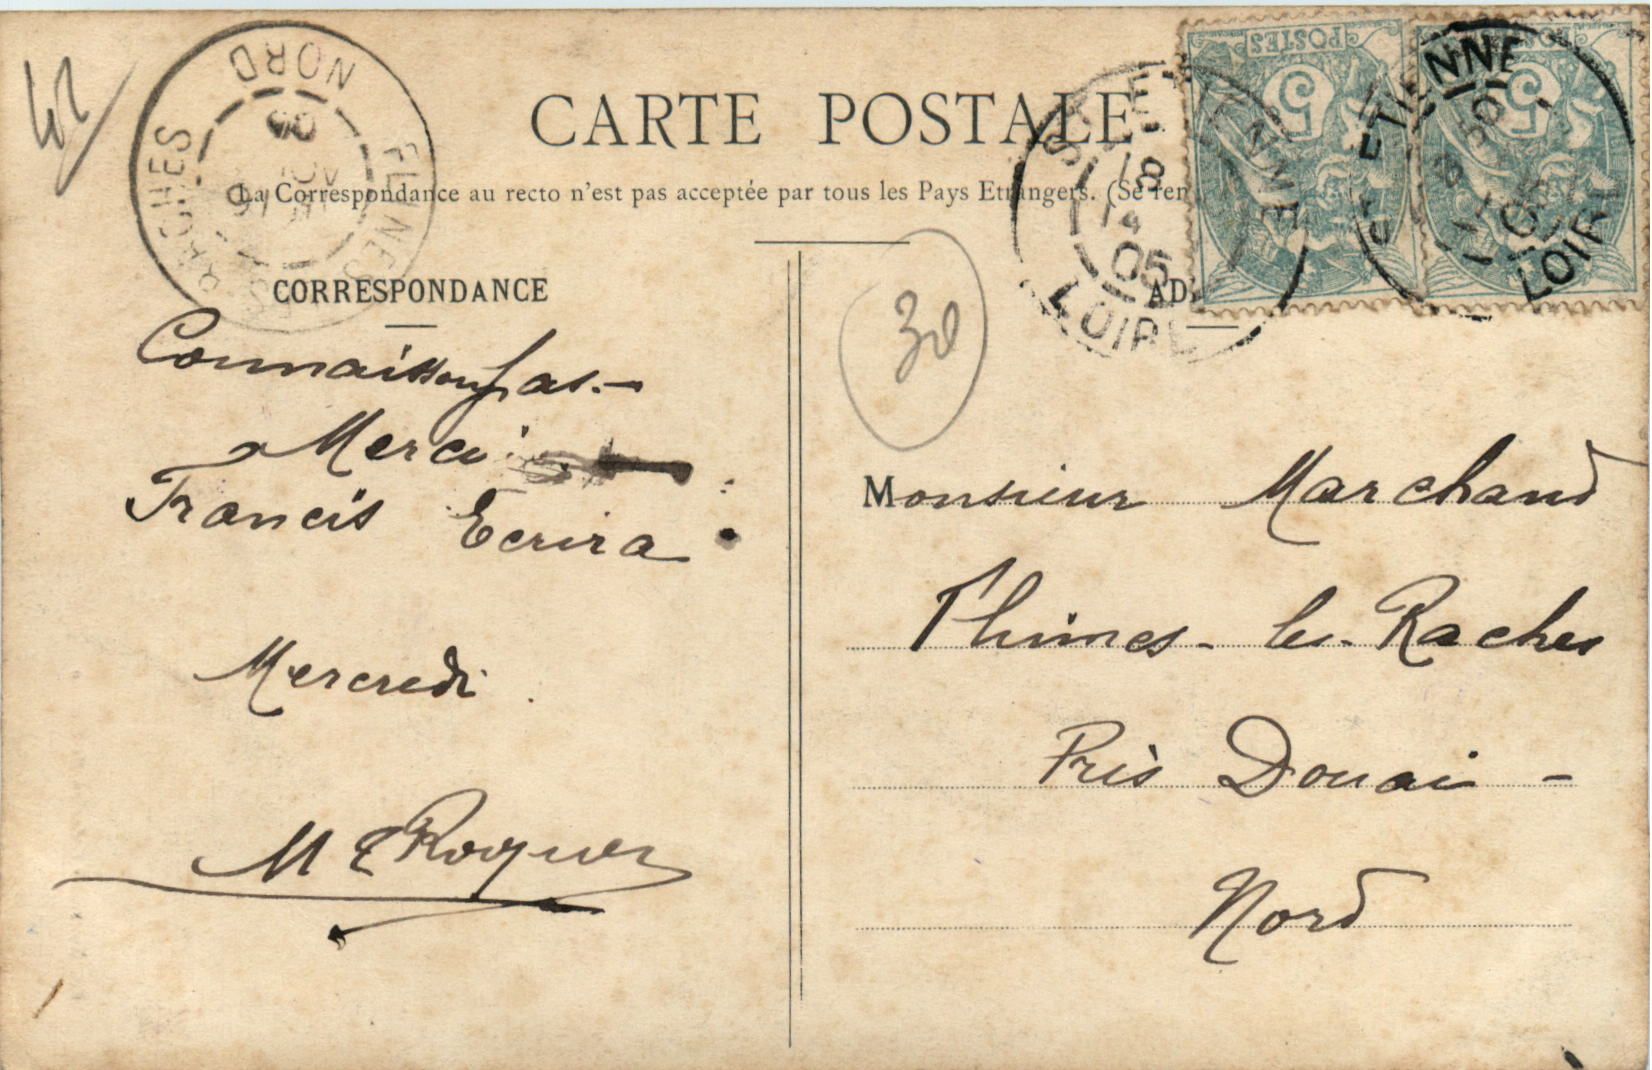 42
NORD
FLINES
RACHES
CARTE POSTALE
La Correspondance au recto n'est pas acceptée par tous les Pays Etrangers. (Se ren
CORRESPONDANCE
AD
POSTES
5
5
ST ETIENNE
18
14
05
LOIRE
ST ETIENNE
LOIRE
30
Connaissons pas.-
Merci
Francis Ecrira
Mercredi
M E Roques
Monsieur Marchand
Flines-les-Raches
Près Douai -
Nord